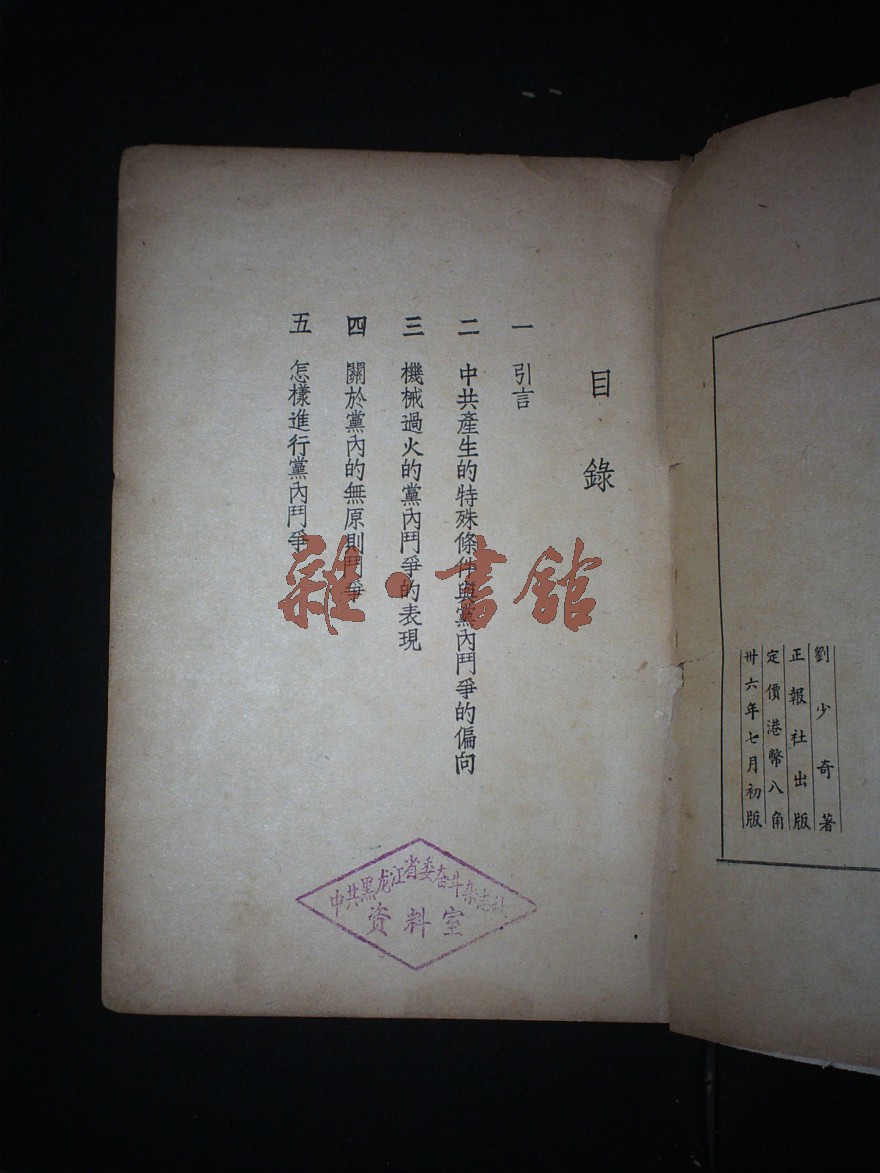 劉少奇著
正報社出版
定價港幣八角
卅六年七月初版
目錄
一 引言
二 中共產生的特殊條件與黨內鬥爭的偏向
三 機械過火的黨內鬥爭的表現
四 關於黨內的無原則鬥爭
五 怎樣進行黨內鬥爭
雜·書館
中共黑龙江省委奋斗杂志社
资料室